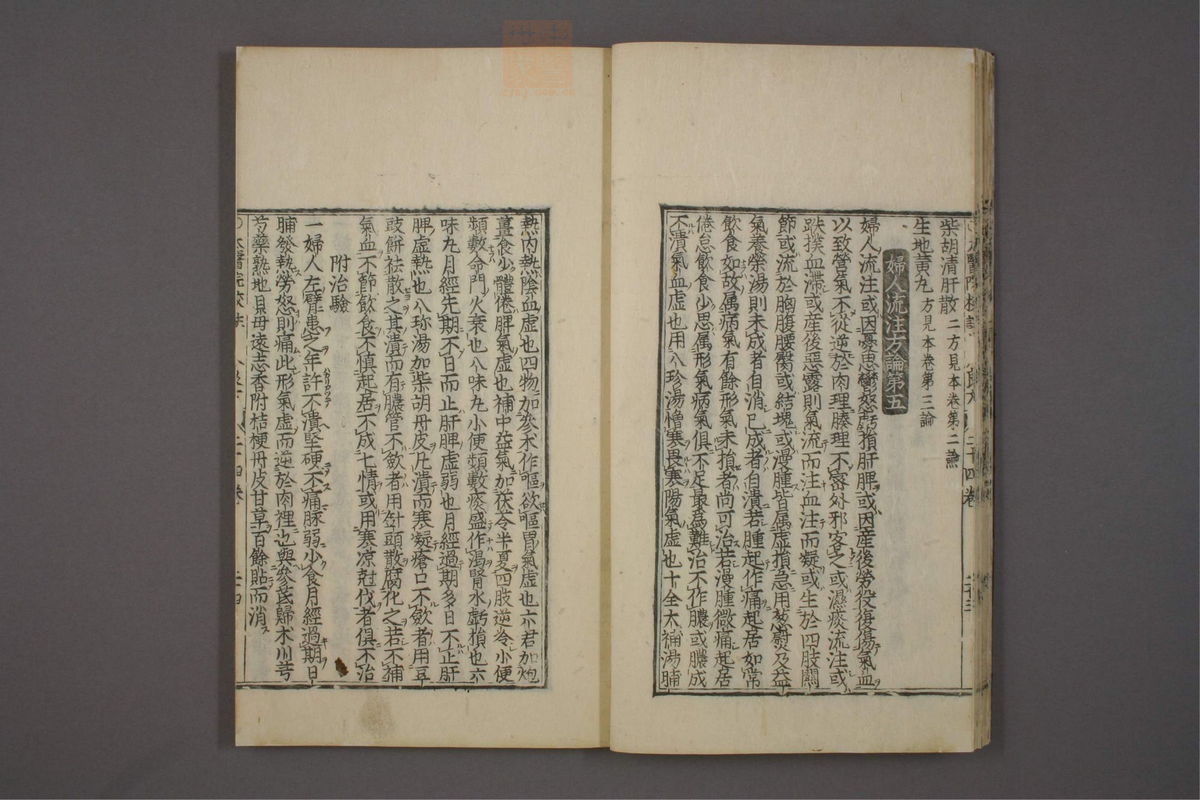 柴胡清肝散 二方見本卷第二論
生地黃丸 方見本卷第三論
婦人流注方論第五
婦人流注或因憂思鬱怒虧損肝脾或因産後勞役復傷氣血
以致營氣不從逆於肉理腠理不密外邪客之或濕痰流注或
跌撲血滯或産後惡露則氣流而注血注而凝或生於四肢關
節或流於胸腹腰臀或結塊或漫腫皆属虛損急用葱熨及益
氣養榮湯則未成者自消已成者自潰若腫起作痛起居如常
飲食如故属病氣有餘形氣未損者尚可治若漫腫微痛起居
倦怠飲食少思属形氣病氣俱不足最爲難治不作膿或膿成
不潰氣血虛也用八珍湯憎寒畏寒陽氣虛也十全大補湯晡
二十四卷
二十三
熱內熱陰血虛也四物加參朮作嘔欲嘔胃氣虛也六君加炮
薑食少體倦脾氣虛也補中益氣加茯苓半夏四肢逆冷小便
頻數命門火衰也八味丸小便頻數痰盛作渴腎水虧損也六
味丸月經先期不日而止肝脾虛弱也月經過期多日不止肝
脾虛熱也八珍湯加柴胡丹皮凡潰而寒凝瘡口不斂者用豆
豉餅祛散之其潰而有膿管不斂者用針頭散腐化之若不補
氣血不節飲食不慎起居不戒七情或用寒凉尅伐者俱不治
附治驗
一婦人左臂患之年許不潰堅硬不痛脉弱少食月經過期日
晡發熱勞怒則痛此形氣虛而逆於肉裡也與參芪歸朮川芎
芍藥熟地貝母遠志香附桔梗丹皮甘草百餘貼而消
二十四卷
二十四